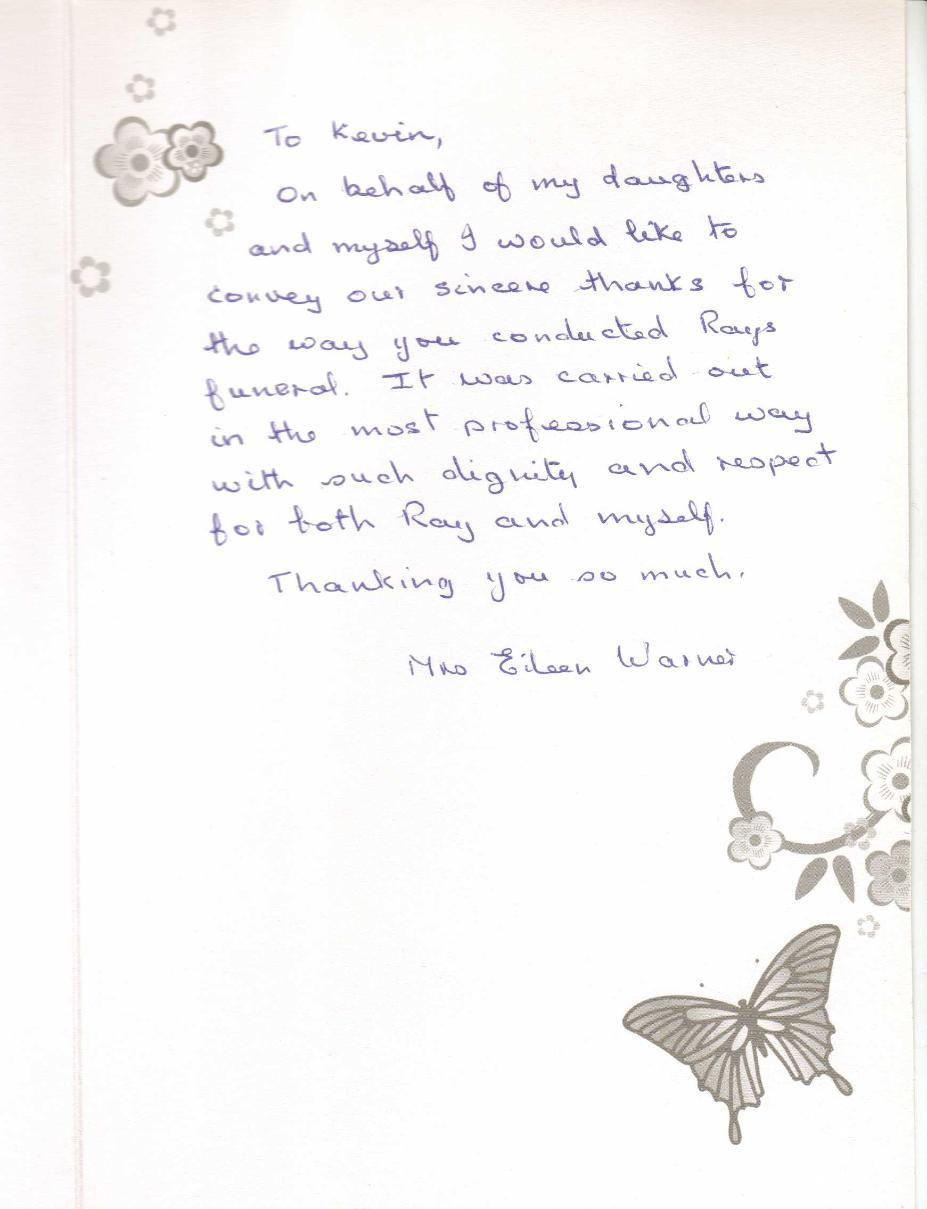 To Kevin,
On behalf of my daughters
and myself I would like to
convey our sincere thanks for
the way you conducted Rays
funeral. It was carried out
in the most professional way
with such dignity and respect
for both Ray and myself.
Thanking you so much.
Mrs Eileen Warner